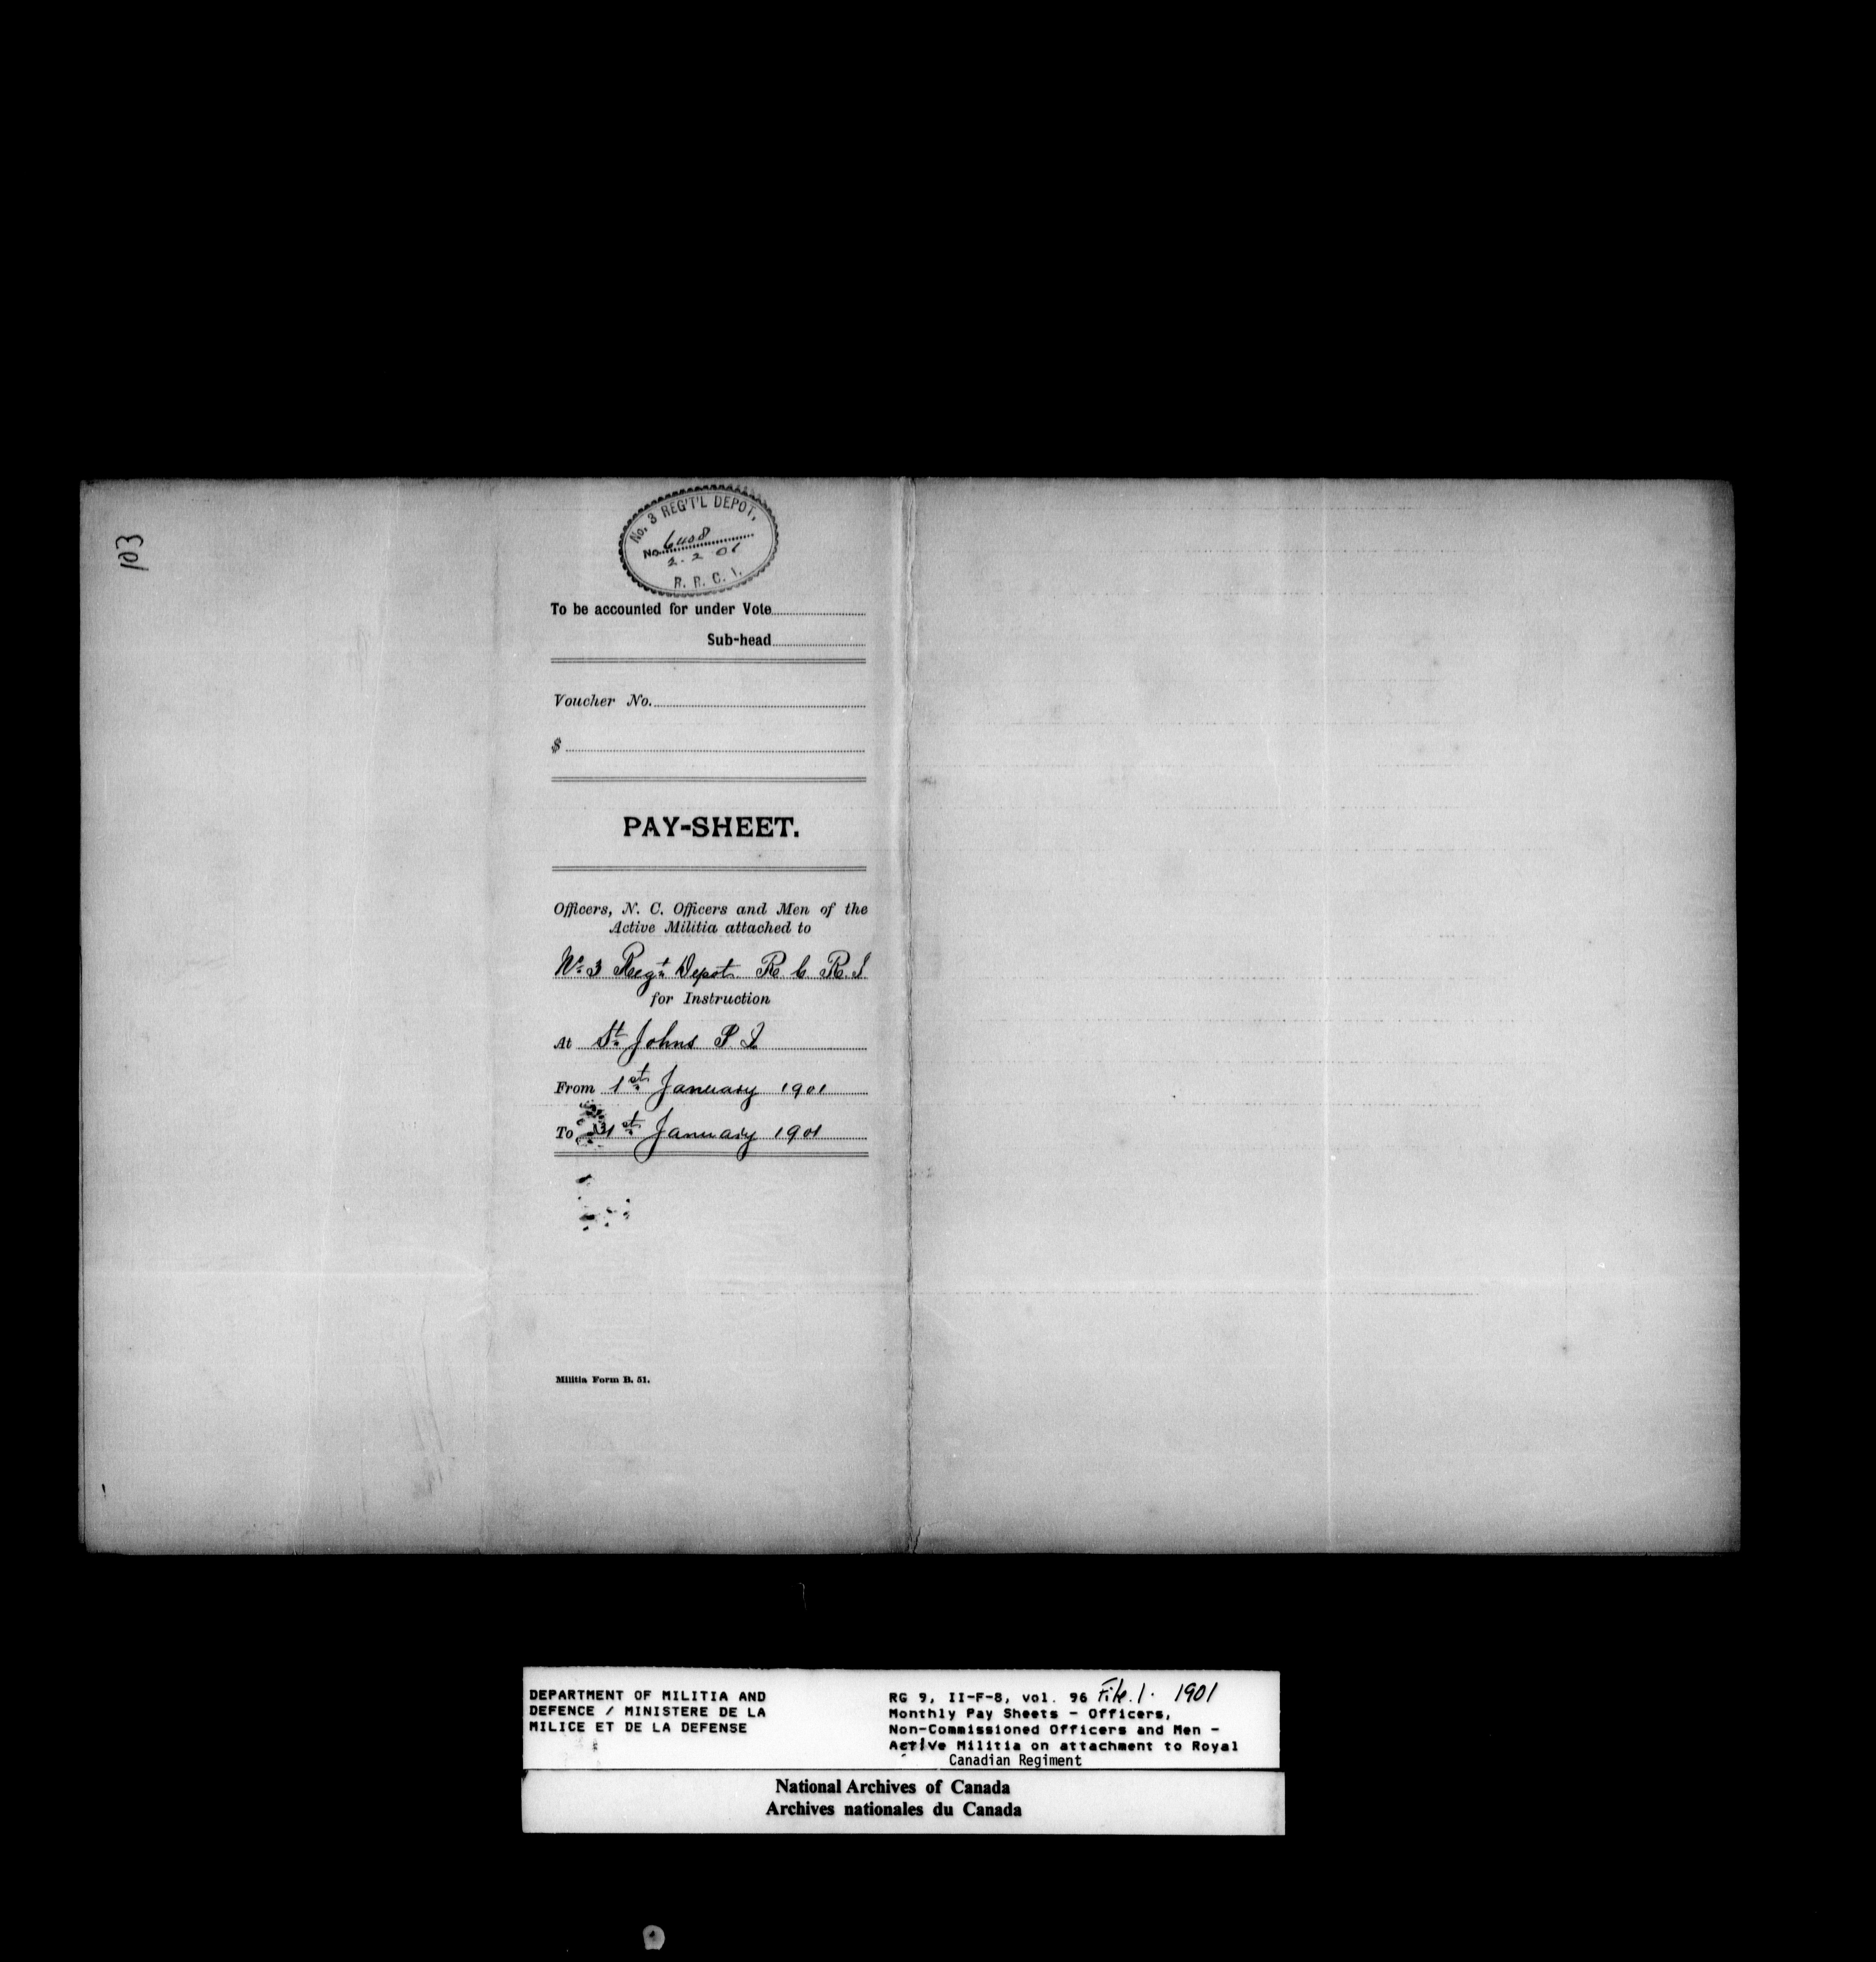 103
No. 3 REG'T'L DEPOT,
No. 6408
2-2 01
R. R. C. I.
To be accounted for under Vote
Sub-head
Voucher No.
$
PAY-SHEET.
Officers, N. C. Officers and Men of the
Active Militia attached to
No 3 Regt Depot R C R. I
for Instruction
At St Johns P. Q
From 1st January 1901
To 31st January 1901
Militia Form B. 51.
DEPARTMENT OF MILITIA AND
DEFENCE / MINISTERE DE LA
MILICE ET DE LA DEFENSE
RG 9, II-F-8, vol. 96 File. 1. 1901
Monthly Pay Sheets - Officers,
Non-Commissioned Officers and Men -
Active Militia on attachment to Royal
Canadian Regiment
National Archives of Canada
Archives nationales du Canada